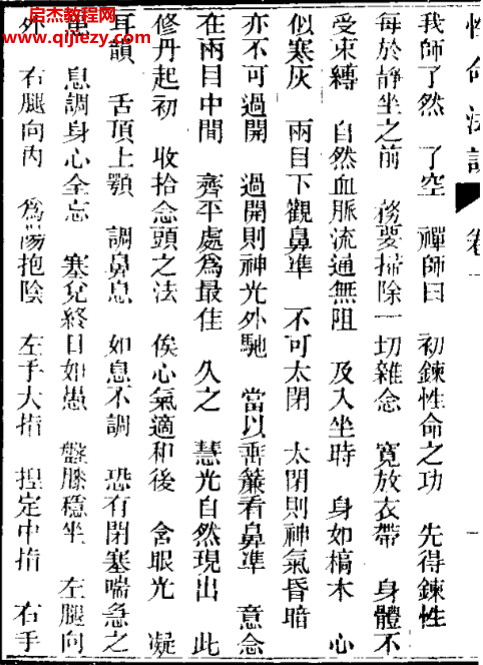 启杰教程网
www.qijiezy.com
性命法訣 卷一 一
我師了然 了空 禪師曰 初鍊性命之功 先得鍊性
每於靜坐之前 務要掃除一切雜念 寬放衣帶 身體不
受束縛 自然血脈流通無阻 及入坐時 身如槁木 心
似寒灰 兩目下觀鼻準 不可太閉 太閉則神氣昏暗
亦不可過開 過開則神光外馳 當以垂簾看鼻準 意念
在兩目中間 齊平處爲最佳 久之 慧光自然現出 此
修丹起初 收拾念頭之法 俟心氣適和後 含眼光 凝
耳韻 舌頂上顎 調鼻息 如息不調 恐有閉塞喘急之
患 息調身心全忘 塞兌終日如愚 盤膝穩坐 左腿向
外 右腿向內 爲陽抱陰 左手大指 捏定中指 右手